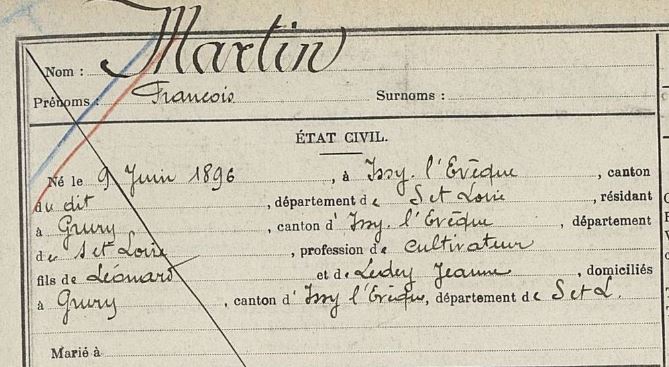 Nom : Martin
Prénoms : Francois Surnoms :
ÉTAT CIVIL.
Né le 9 Juin 1896, à Issy. l'Evêque, canton
du dit, département de S et Loire, résidant
à Grury, canton d'Issy. l'Evêque, département
de S et Loire, profession de cultivateur
fils de Léonard et de Ledey Jeanne, domiciliés
à Grury, canton d'Issy l'Evêque, département de S et L.
Marié à